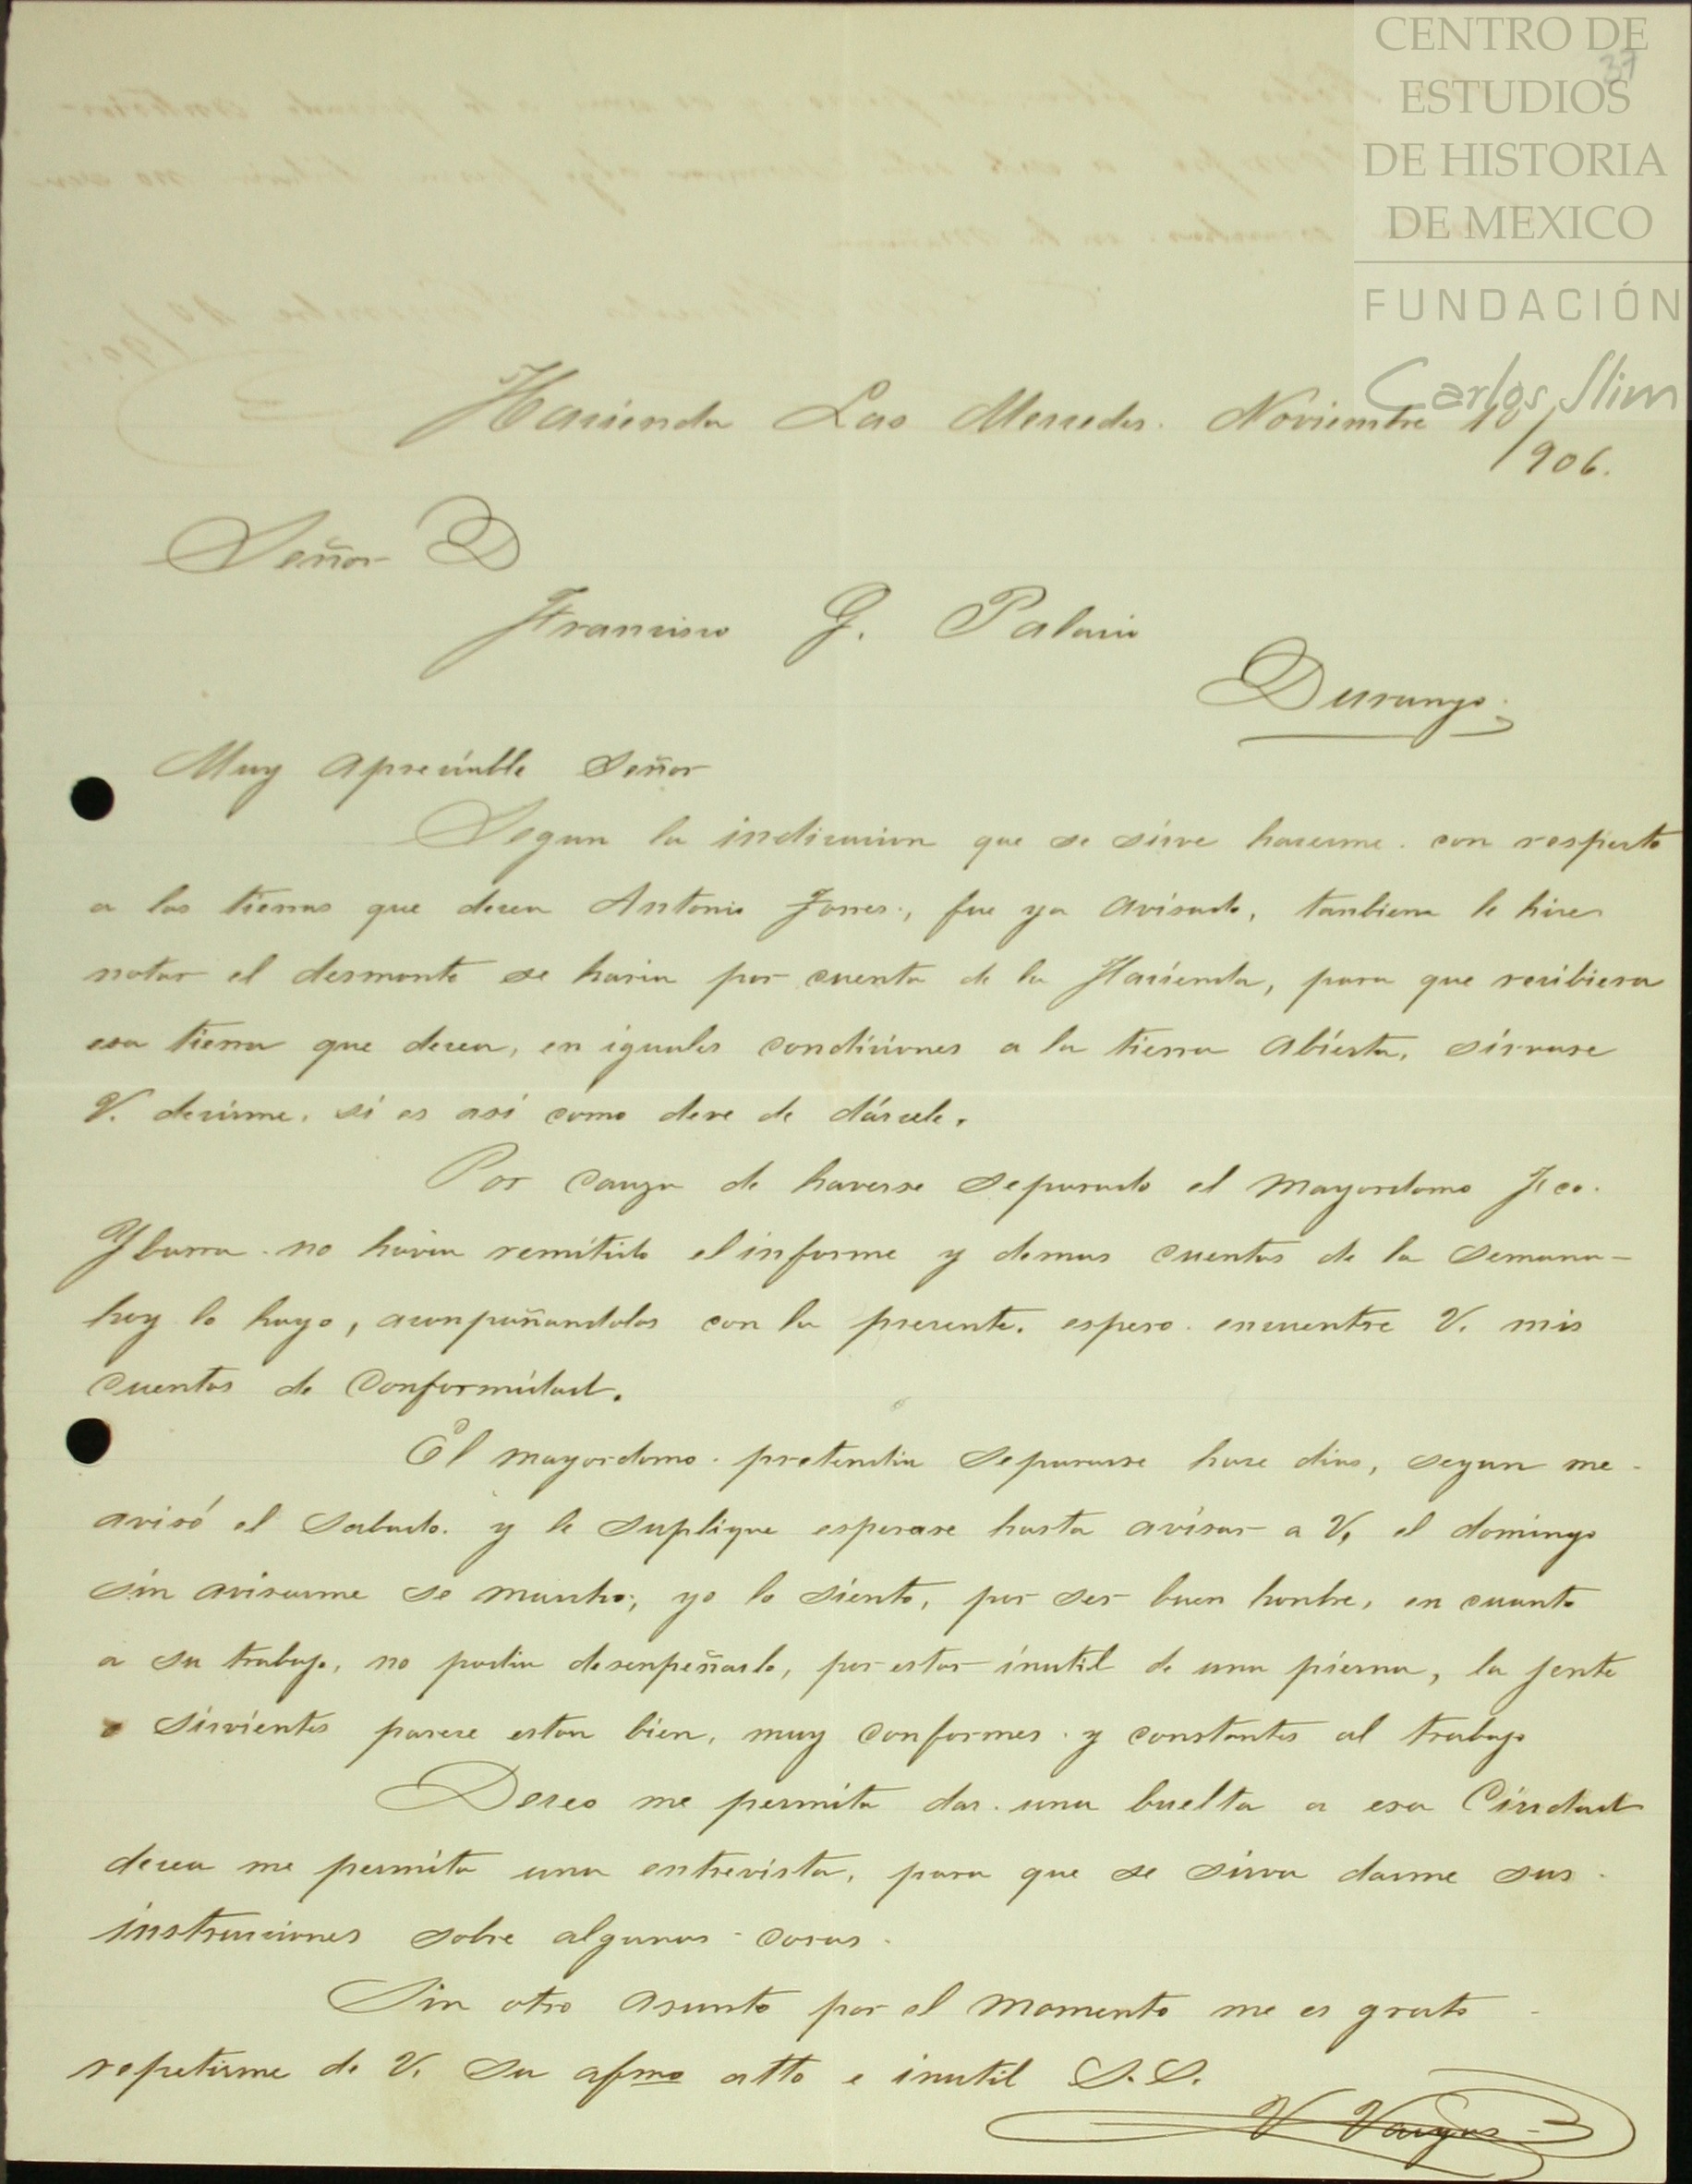 CENTRO DE
ESTUDIOS
DE HISTORIA
DE MEXICO
FUNDACIÓN
Carlos Slim
37
Hacienda Las Mercedes. Noviembre 10/906.
Señor D
Francisco G. Palacio
Durango.
Muy apreciable Señor
Segun la indicacion que se sirve hacerme. con respecto
a las tierras que decea Antonio Torres, fue ya avisado, tanbien le hice
notar el desmonte se haria por cuenta de la Hacienda, para que recibiera
esa tierra que decea, en iguales condiciones a la tierra abierta, sirvase
V. decirme, si es así como deve de dársele.
Por cauza de haverse separado el mayordomo Fco.
Ybarra. no havia remitido el informe y demas cuentas de la semana-
hoy lo hago, aconpañandolos con la precente. espero. encuentre V. mis
cuentas de conformidad.
El mayordomo. pretendia separarse hace dias, segun me-
avisó el sabado. y le suplique esperase hasta avisar a V, el domingo
sin avisarme se marcho; yo lo siento, por ser buen honbre, en cuanto
a su trabajo, no podia desenpeñarlo, por estar inutil de una pierna, la jente
o sirvientes parece estan bien, muy conformes. y constantes al trabajo
Deceo me permita dar. una buelta a esa Ciudad
decea me permita una entrevista, para que se sirva darme sus-
instrucciones sobre algunas- cosas-
Sin otro asunto por el momento me es grato-
repetirme de V. su afmo atto e inutil S.S.
V Vargas